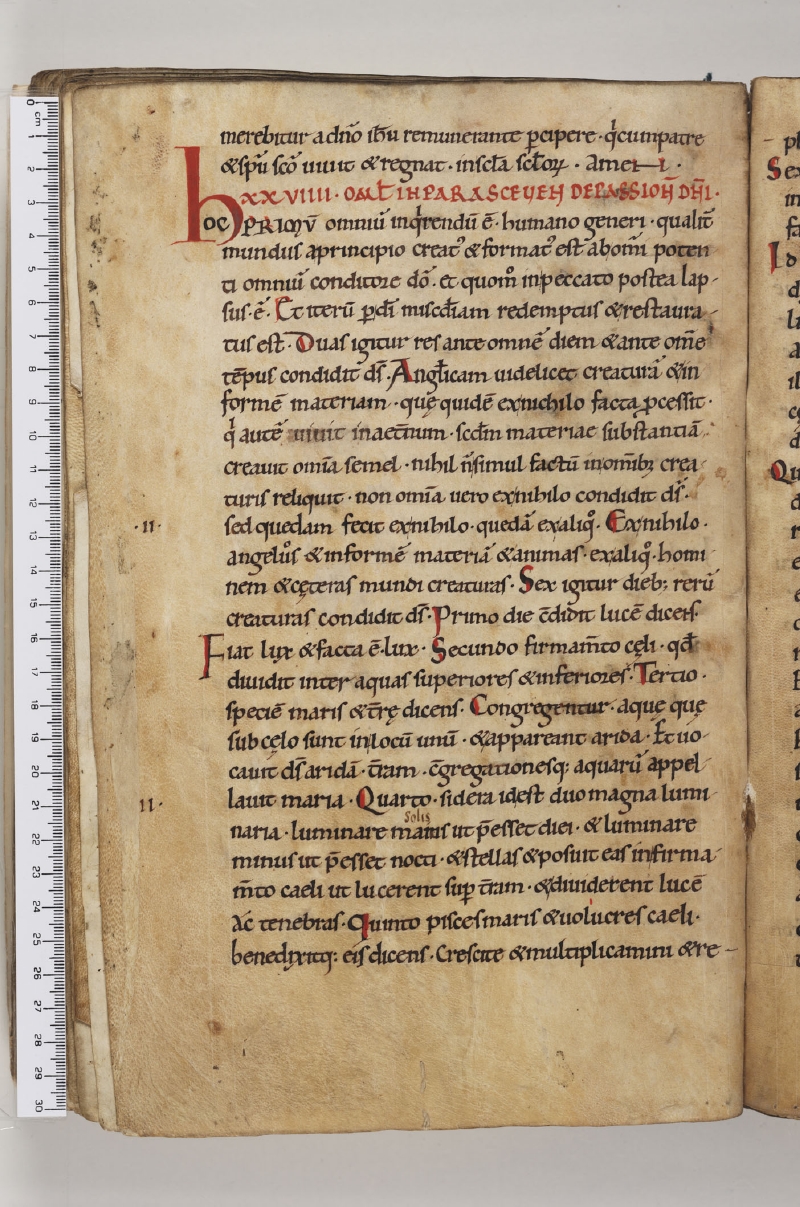 merebitur a dn̄o ih̄u remunerante ꝑcipere · qͥ cum patre
& sp̄u sc̄o uiuit & regnat · in sc̄la sc̄loꝝ · Amen ·
XXVIIII · OML̄ IN PARASCEUEN DE PASSIONE DN̄I ·
hoc PRIMŪ omniū inqͥrendū ē · humano generi · qualit̄
mundus a principio creatꝰ & formatꝰ est ab om̄i poten
ti omniū conditore dō · et quom̊ in peccato postea lap-
sus · ē · Et iterū ꝑ dī miscd̄iam redemptus & restaura-
tus est · Duas igitur res ante omnē diem & ante om̄e
tēpus condidit ds̄ · Angl̄icam uidelicet creaturā & in
formē materiam · quę quidē ex nichilo facta ꝓcessit ·
qͥ autē uiuit in aet̄num · scd̄m materiae substantiā ·
creauit om̄ia semel · nihil n̄ simul factū in om̄ibꝫ crea-
turis reliquit · non om̄ia uero ex nihilo condidit ds̄ ·
· II · sed quedam fecit ex nihilo · quedā ex aliqͦ · Ex nihilo ·
angelos & informē materiā & animas · ex aliqͦ · homi
nem & cęteras mundi creaturas · Sex igitur dieb; rerū
creaturas condidit ds̄ · Primo die c̄didit lucē dicens ·
Fiat lux & facta ē · lux · Secundo firmam̄to cęli · qd̄
diuidit inter aquas superiores & inferiores · Tertio ·
speciē maris & t̄rę dicens · Congregentur · aque quę
sub cęlo sunt in locū unū · & appareant arida · Et uo-
cauit ds̄ aridā · t̄ram · c̄gregationesq; aquarū appel-
II · lauit maria · Quarto · sidera idest duo magna lumi-
solis
naria · luminare maius ut p̄esset diei · & luminare
minus ut p̄esset nocti · & stellas & posuit eas in firma-
m̄to caeli ut lucerent suꝑ t̄ram · & diuiderent lucē
Ac tenebras · Quinto pisces maris & uolucres caeli ·
benedixitq; eis dicens · Crescite & multiplicamini & re-